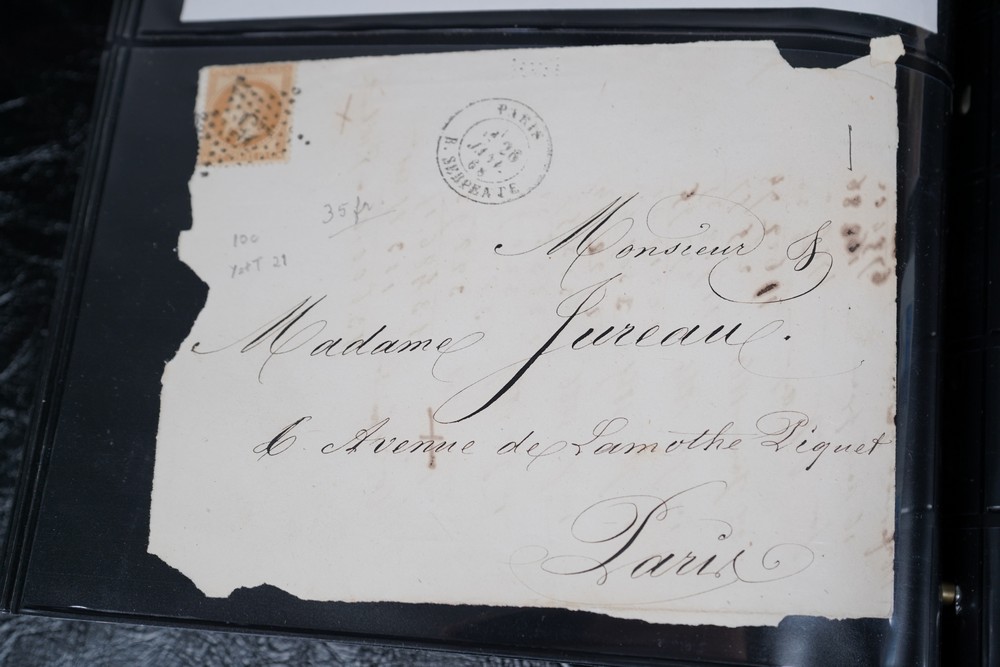 PARIS
28
JANV.
68
R. SERPENTE
35 fr.
100
Monsieur &
Madame Jureau.
6 Avenue de Lamothe Piquet
Paris